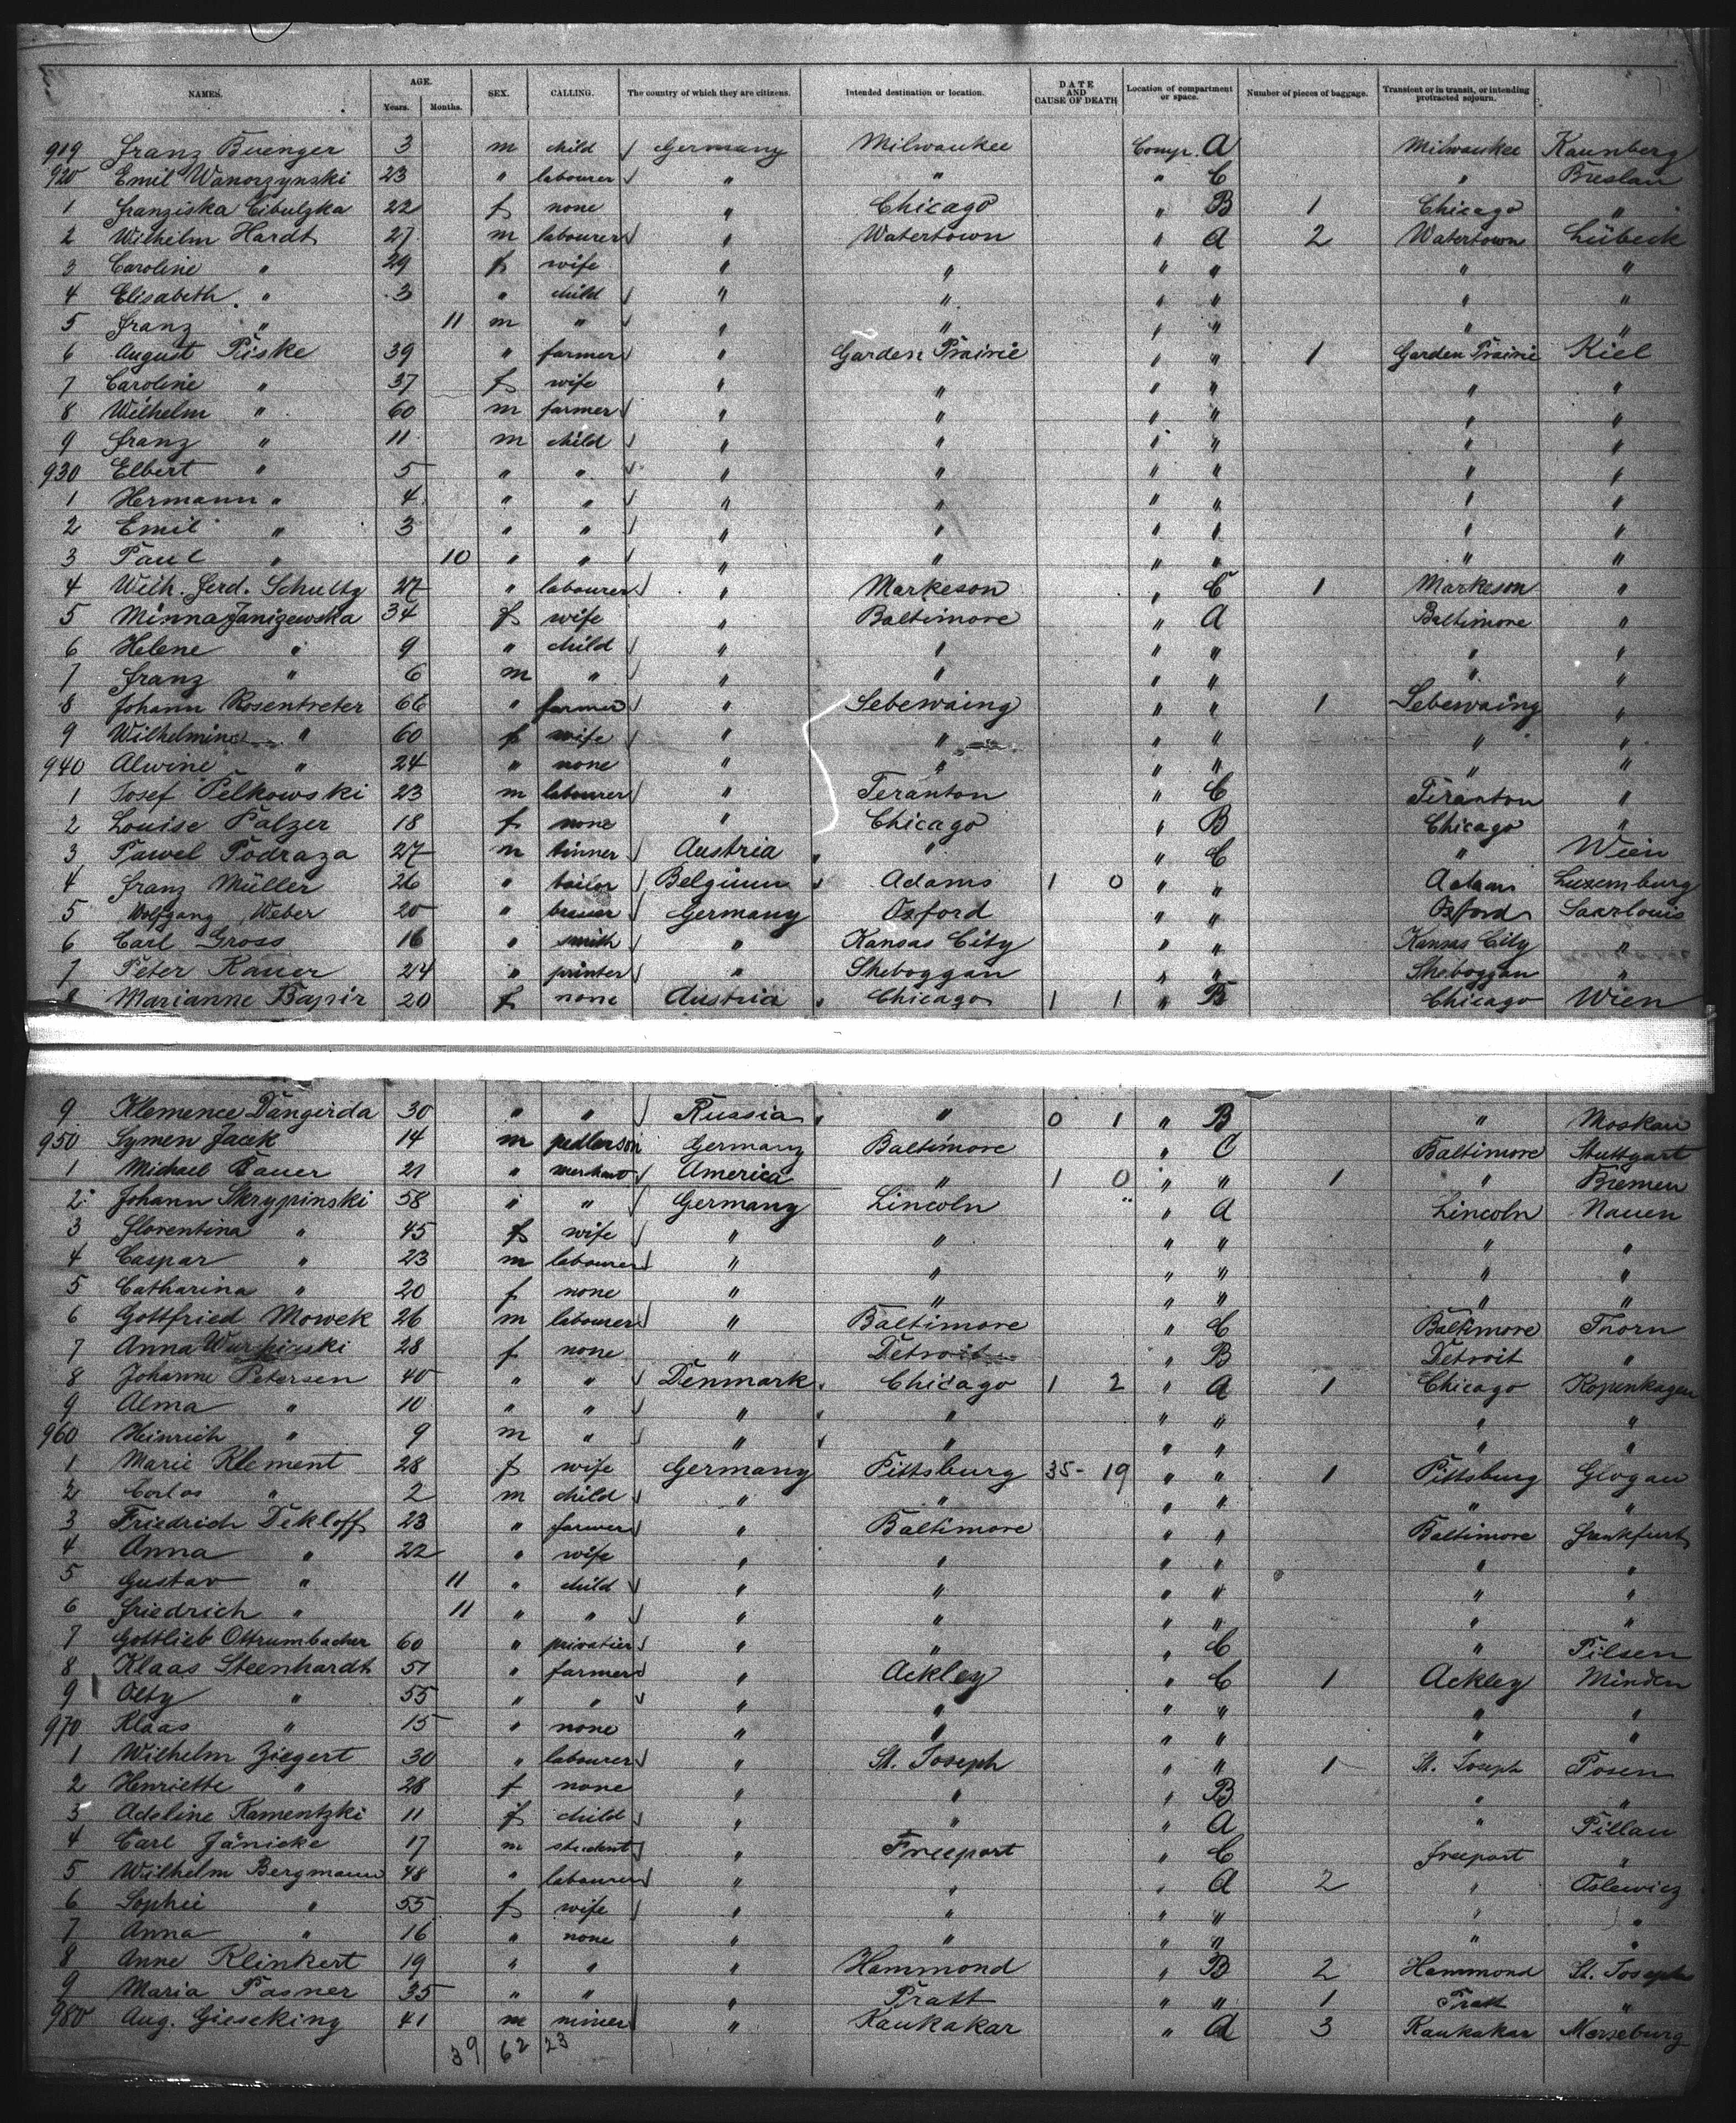 NAMES. AGE. Years. Months. SEX. CALLING. The country of which they are citizens. Intended destination or location. DATE AND CAUSE OF DEATH Location of compartment or space. Number of pieces of baggage. Transient or in transit, or intending protracted sojourn.
919 Franz Buenger 3 m child Germany Milwaukee Comp. A Milwaukee Kaunberg
920 Emil Wanorzynski 23 " labourer " " " C " Breslau
1 Franziska Cibulzka 22 f none " Chicago " B 1 Chicago "
2 Wilhelm Hardt 27 m labourer " Watertown " A 2 Watertown Lübeck
3 Caroline " 29 f wife " " " " " "
4 Elisabeth " 3 " child " " " " " "
5 Franz " 11 m " " " " " " "
6 August Piske 39 " farmer " Garden Prairie " " 1 Garden Prairie Kiel
7 Caroline " 37 f wife " " " " " "
8 Wilhelm " 60 m farmer " " " " " "
9 Franz " 11 m child " " " " " "
930 Elbert " 5 " " " " " " " "
1 Hermann " 4 " " " " " " " "
2 Emil " 3 " " " " " " " "
3 Paul " 10 " " " " " " " "
4 Wilh. Ferd. Schultz 27 " labourer " Markeson " C 1 Markeson "
5 Minna Janizewska 34 f wife " Baltimore " A Baltimore "
6 Helene " 9 " child " " " " " "
7 Franz " 6 m " " " " " " "
8 Johann Rosentreter 66 " farmer " Sebewaing " " 1 Sebewaing "
9 Wilhelmine " 60 f wife " " " " " "
940 Alwine " 24 " none " " " " " "
1 Josef Pelkowski 23 m labourer " Feranton " C Feranton "
2 Louise Palzer 18 f none " Chicago " B Chicago "
3 Pawel Podraza 27 m tinner Austria " " C " Wien
4 Franz Müller 26 " tailor Belgium Adams 1 0 " " Adams Luxemburg
5 Wolfgang Weber 20 " brauer Germany Oxford " " Oxford Saarlouis
6 Carl Gross 16 " smith " Kansas City " " Kansas City "
7 Peter Kauer 24 " printer " Sheboggan " " Sheboggan "
8 Marianne Bapir 20 f none Austria Chicago 1 1 " B Chicago Wien
9 Klemence Dangirda 30 " " Russia " 0 1 " B " Moskau
950 Symen Jacek 14 m pedlerson Germany Baltimore " C Baltimore Stuttgart
1 Michael Bauer 21 " merchant America " 1 0 " " 1 " Bremen
2 Johann Skrypinski 58 " " Germany Lincoln " A Lincoln Nauen
3 Florentina " 45 f wife " " " " " "
4 Caspar " 23 m labourer " " " " " "
5 Catharina " 20 f none " " " " " "
6 Gottfried Mowek 26 m labourer " Baltimore " C Baltimore Thorn
7 Anna 28 f none " Detroit " B Detroit "
8 Johanne Petersen 40 " " Denmark Chicago 1 2 " A 1 Chicago Kopenhagen
9 Alma " 10 " " " " " " " "
960 Heinrich " 9 m " " " " " " "
1 Marie Klement 28 f wife Germany Pittsburg 35 - 19 " " 1 Pittsburg Glogau
2 Carlos " 2 m child " " " " " "
3 Friedrich Dekloff 23 " farmer " Baltimore " " Baltimore Frankfurt
4 Anna " 22 " wife " " " " " "
5 Gustav " 11 " child " " " " " "
6 Friedrich " 11 " " " " " " " "
7 Gottlieb Ottrumbacher 60 " privatier " " " C " Pilsen
8 Klaas Steenhardt 51 " farmer " Ackley " C 1 Ackley Minden
9 Olty " 55 " " " " " " " "
970 Klaas " 15 " none " " " " " "
1 Wilhelm Ziegert 30 " labourer " St. Joseph " " 1 St. Joseph Posen
2 Henriette " 28 f none " " " B " "
3 Adeline Kamentzki 11 f child " " " A " Pillau
4 Carl Jänicke 17 m student " Freeport " C Freeport "
5 Wilhelm Bergmann 48 " labourer " " " A 2 " Oslewicz
6 Sophie " 55 f wife " " " " " "
7 Anna " 16 " none " " " " " "
8 Anne Klinkert 19 " " " Hammond " B 2 Hammond St. Joseph
9 Maria Pasner 35 " " " Pratt " " 1 Pratt "
980 Aug. Gieseking 41 m miner " Kaukakar " A 3 Kaukakar Merseburg
39 62 23